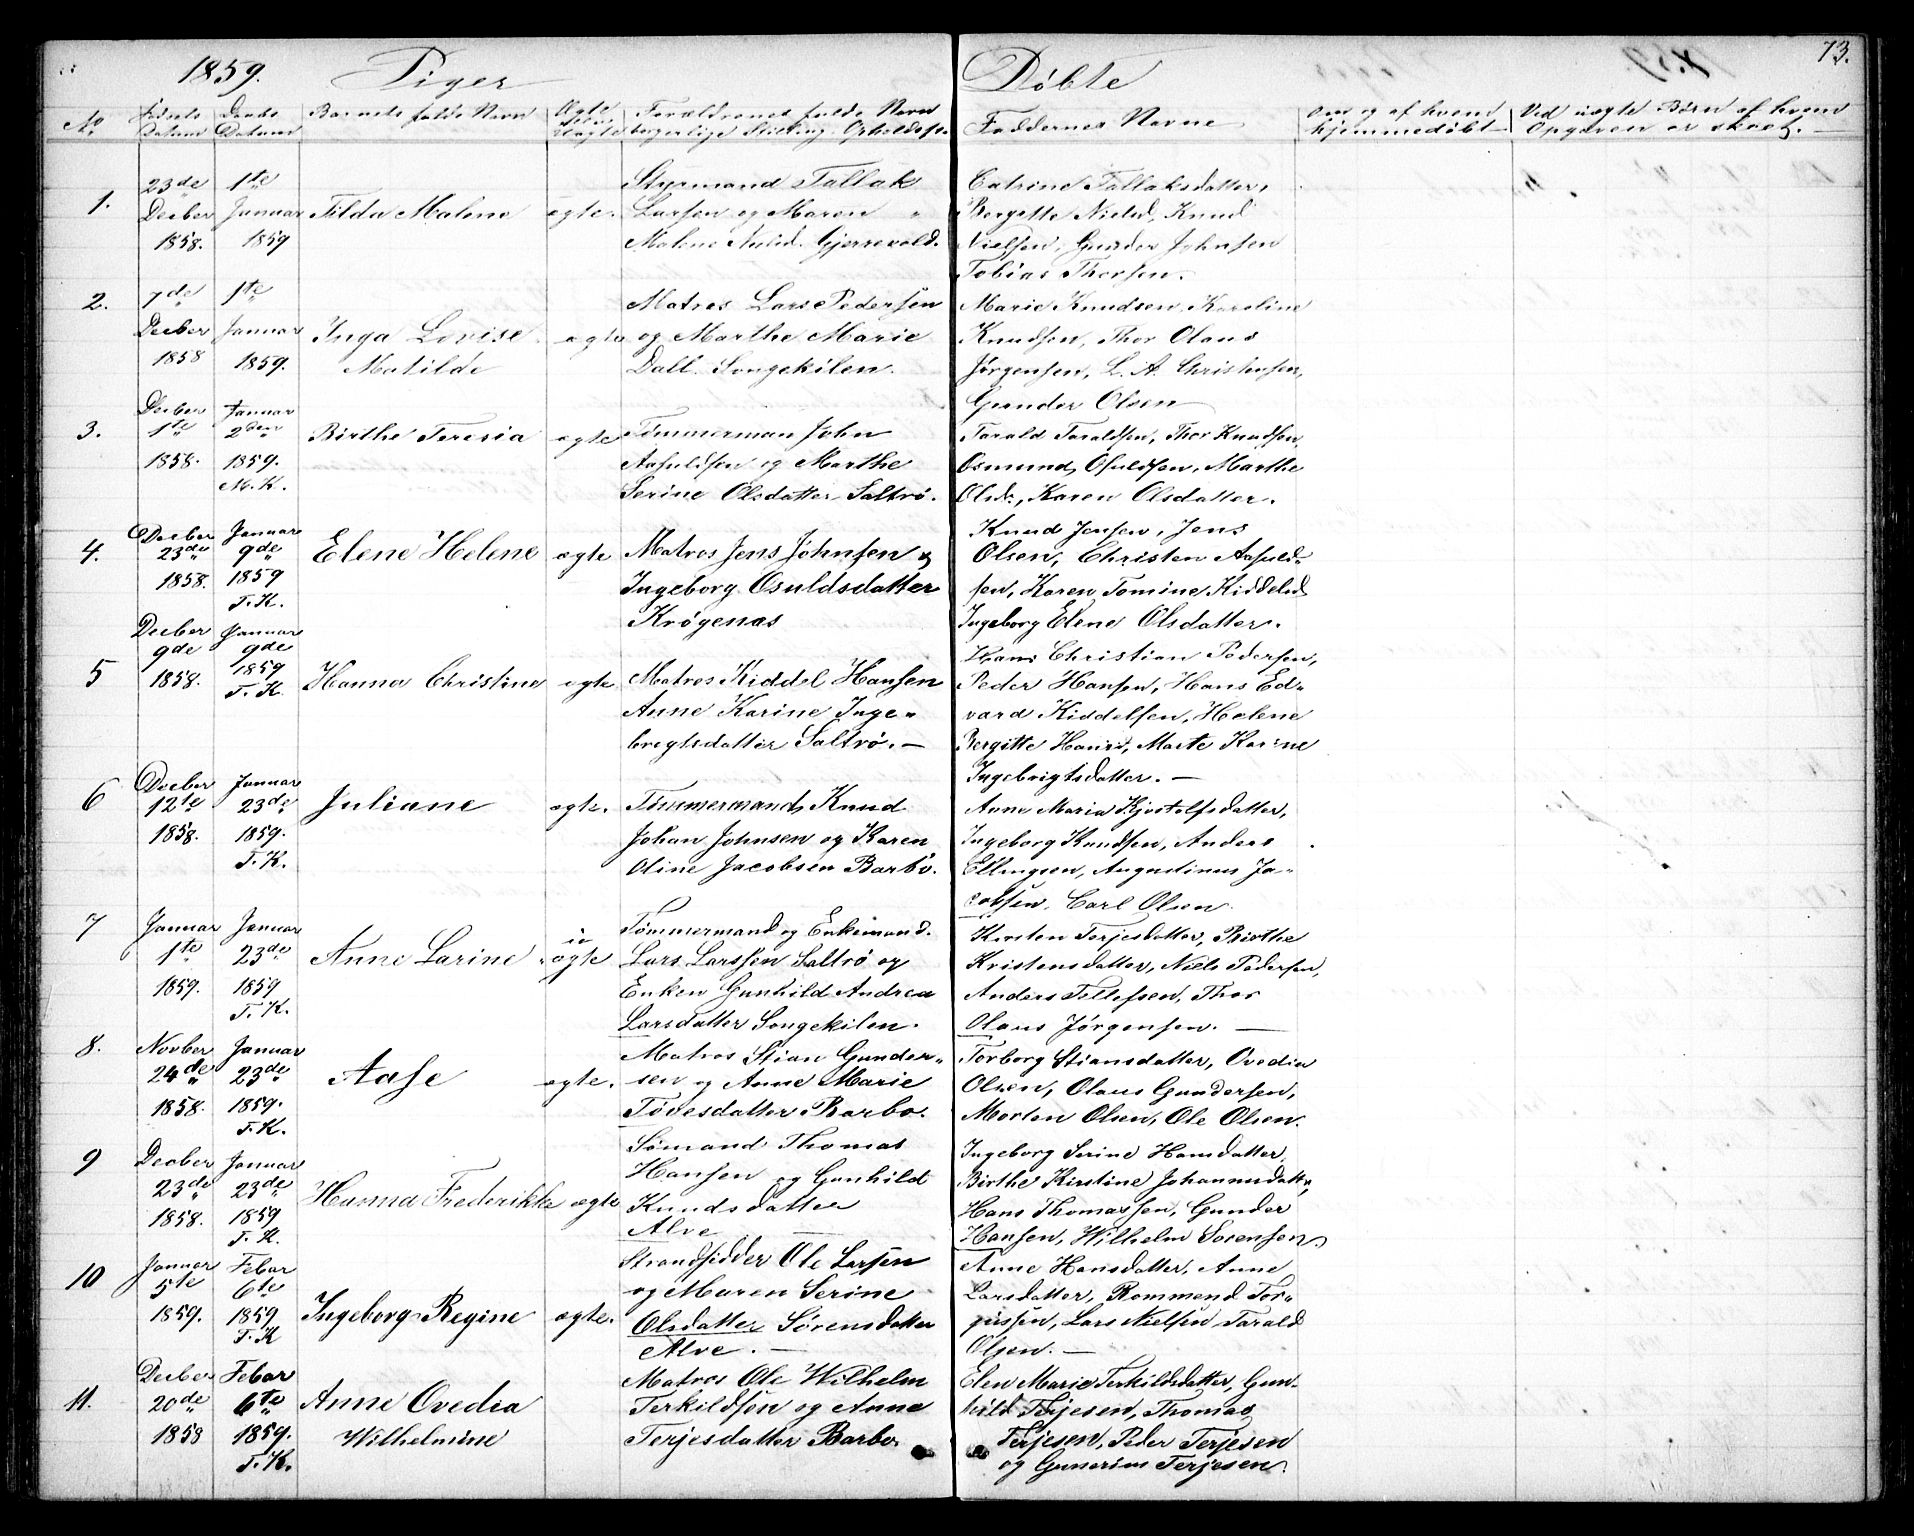 1859. Piger Døbte 73.
No Fødsels Datum Daabs Datum Barnets fulde Navn Ægte eller Uægte Forældrenes fulde Navn borgerlige Stilling Opholdssted Faddernes Navne Om og af hvem hjemmedøbt Ved uægte Børn af hvem Opgaven er skeet.
1. 23de Decber 1858. 1te Januar 1859 Tilda Malene ægte.
Styrmand Tallak
Larsen og Maren
Malene Gjerrevold.
Catrine Tallaksdatter,
Bergitte Nielsd, Knud
Nielsen, Gunder Johnsen
Tobias Thorsen.
2. 7de Decber 1858 1te Januar 1859. Inga Lovise Matilde ægte
Matros Lars Pedersen
og Marthe Marie
Dall. Songekilen.
Marie Knudsen, Karoline
Knudsen, Thor Olaus
Jørgensen, L. A. Christensen,
Gunder Olsen
3. Decber 1te 1858. Januar 2den 1859. M.K. Birthe Teresia ægte
Tømmerman John
Aasuldsen og Marthe
Serine Olsdatter Saltrö.
Tarald Taraldsen, Thor Knudsen,
Osmund Osuldsen, Marthe
Olsd., Karen Olsdatter.
4. Decber 23de 1858. Januar 9de 1859 T.K. Elene Helene ægte
Matros Jens Johnsen &
Ingeborg Osuldsdatter
Krøgenæs
Knud Jensen, Jens
Olsen, Christen Aasuld-
sen, Karen Tomine Kiddelsd
Ingeborg Elene Olsdatter.
5 Decber 9de 1858. Januar 9de 1859 T.K. Hanna Christine ægte
Matros Kiddel Hansen
Anne Karine Inge-
bregtsdatter Saltrö. —
Hans Christian Pedersen,
Peder Hansen, Hans Ed-
vard Kiddelsen, Helene
Bergitte Hansd, Marte Karine
Ingebrigtsdatter. —
6 Decber 12te 1858. Januar 23de 1859. T.K. Juliane ægte.
Tømmermand Knud
Johan Johnsen og Karen
Oline Jacobsen Barbo.
Anne Maria Kjøstolfsdatter,
Ingeborg Knudsen, Anders
Ellingsen, Augundinus Ja-
cobsen. Carl Olsen
7 Januar 1te 1859. Januar 23de 1859 T.K. Anne Larine uægte
Tømmermand og Enkemand
Lars Larssen Saltrö og
Enken Gunhild Andrea
Larsdatter Songekilen.
Kirsten Terjesdatter, Birthe
Kristensdatter, Niels Pedersen,
Anders Tellefsen, Thor
Olaus Jørgensen. —
8. Novber 24de 1858. Januar 23de 1859. T.K. Aase ægte.
Matros Stian Gunder-
sen og Anne Marie
Tovesdatter Barbo.
Torborg Stiansdatter, Ovedia
Olsen, Olaus Gundersen,
Morten Olsen, Ole Olsen.
9 Decber 23de 1858. Januar 23de 1859 T.K. Hanna Frederikke ægte
Sømand Thomas
Hansen og Gunhild
Knudsdatter
Alve
Ingeborg Serine Hansdatter,
Birthe Kirstine Johannsdatter,
Hans Thomassen, Gunder
Hansen, Wilhelm Sørensen.
10 Januar 5te 1859. Febar 6te 1859 T.K Ingeborg Regine ægte.
Strandsidder Ole Larsen
og Maren Serine
Olsdatter Sörensdatter
Alve. —
Anne Hansdatter, Anne
Larsdatter, Rommend Tor-
gussen, Lars Nielsen, Tarald
Olsen. —
11. Decber 20de 1858 Febar 6te 1859. T.K. Anne Ovedia Wilhelmine
Matros Ole Wilhelm
Terkildsen og Anne
Terjesdatter Barbo
Elen Marie Terkildsdatter, Gun-
hild Terjesen, Thomas
Terjesen, Peder Terjesen
og Gunerius Terjesen.